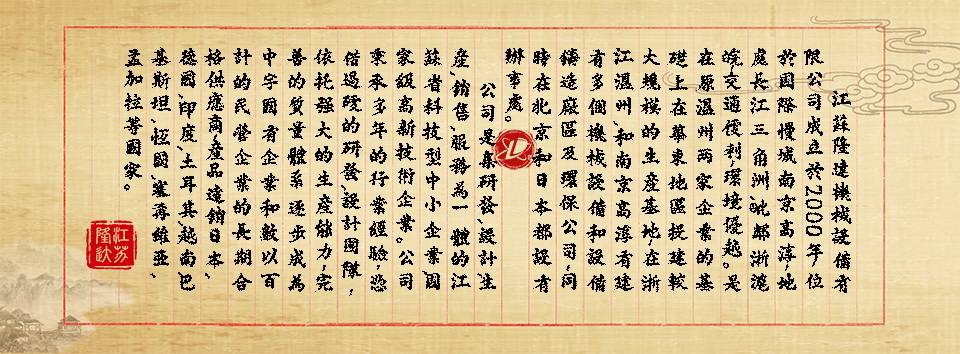 江蘇隆達機械設備有
限公司成立於2000年,位
於國際慢城南京高淳,地
處長江三角洲,毗鄰浙滬
皖,交通便利,環境優越。是
在原溫州兩家企業的基
礎上在華東地區投建較
大規模的生產基地,在浙
江溫州,和南京高淳有建
有多個機械設備和設備
鑄造廠區及環保公司,同
時在北京和日本都設有
辦事處。
公司是集研發、設計、生
產、銷售、服務為一體的江
蘇省科技型中小企業,國
家級高新技術企業。公司
秉承多年的行業經驗,憑
借過硬的研發、設計團隊,
依托强大的生產能力,完
善的質量體系,逐步成為
中字國有企業和數以百
計的民營企業的長期合
格供應商,產品遠銷日本、
德國、印度、土耳其、越南、巴
基斯坦、恆國、塞薄維亞、
孟加拉等國家。
江苏
隆达